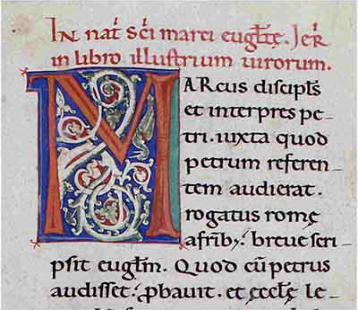 IN nat̄ sc̄i marci eugl̄tę. Jeř
in libro illustrium uirorum.
MARcus discipl̄s
et interpres pe-
tri. iuxta quod
petrum referen-
tem audierat.
rogatus romę
a fr̄ib;. breue scri-
psit eugl̄m. Quod cū petrus
audisset. ꝓbauit. et ęccl̄ę le-